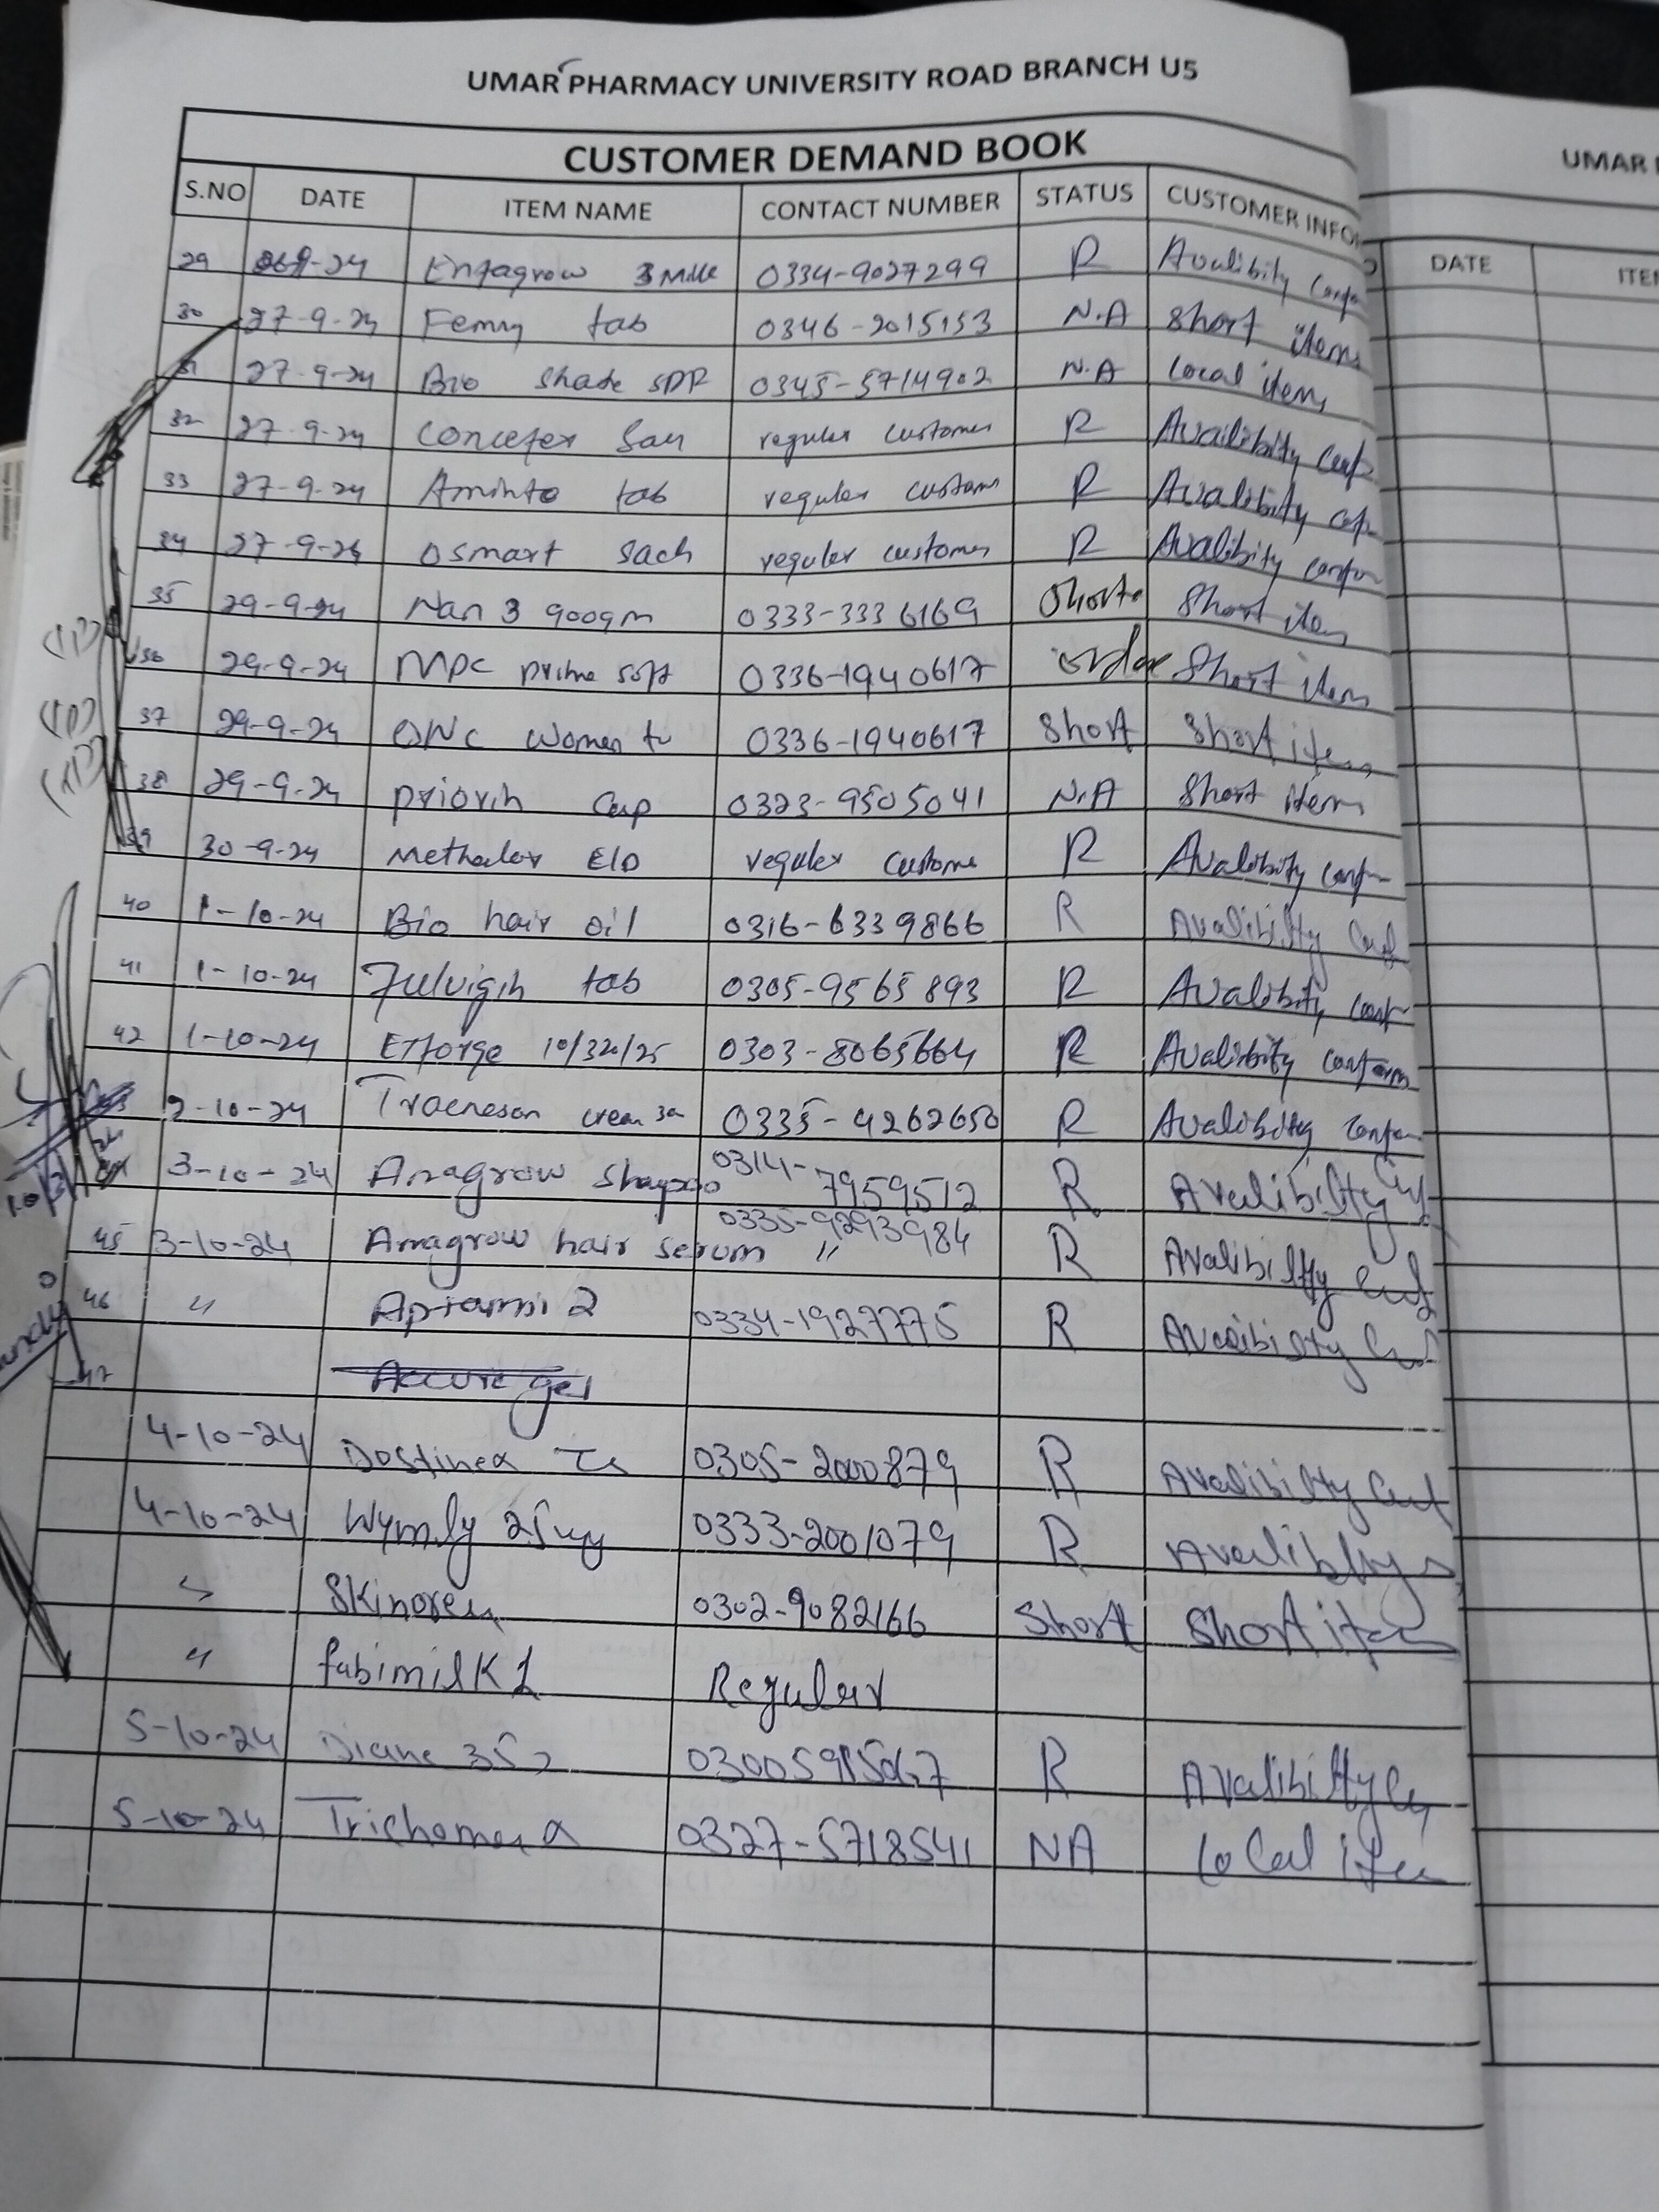 UMAR PHARMACY UNIVERSITY ROAD BRANCH U5
CUSTOMER DEMAND BOOK
S.NO DATE ITEM NAME CONTACT NUMBER STATUS CUSTOMER INFO
29 -24 Enfagrow 3 Milk 0334-9027299 R Avalibity
30 27-9-24 Femny tab 0346-2015153 N.A Short item
31 27-9-24 Bio Shade 0345-5714902 N.A Local item
32 27-9-24 regular customer R Availibity
33 27-9-24 Aminto tab regular custom R Avalibity
34 27-9-24 Osmart Sach regular customer R Avalibity
35 29-9-24 Nan 3 900gm 0333-3336169 Short Short item
36 29-9-24 MPC prime soft 0336-1940617 order Short item
37 29-9-24 Women 0336-1940617 Short Short item
38 29-9-24 priorin Cap 0323-9505041 N.A Short item
39 30-9-24 regular custome R Avalibity
40 1-10-24 Bio hair oil 0316-6339866 R Avalibilty
41 1-10-24 Fulvigin tab 0305-9565893 R Avalibity
42 1-10-24 10/320/25 0303-8065664 R Avalibity conform
2-10-24 cream 0335-4262650 R Avalibity
3-10-24 Anagrow 0314-7959512 R Avalibilty
45 3-10-24 Anagrow hair serum 0335-9293984 " R Avalibilty
46 " Aptamil 2 0334-1927775 R Avalibilty
47
4-10-24 Dostinex 0305-2000879 R Avalibilty
4-10-24 0333-2001079 R
" Skinoren 0302-9082166 Short Short item
" fabimilk 1 Regular
5-10-24 Diane 35 R Avalibilty
5-10-24 0327-5718541 NA Local item
UMAR
DATE ITE